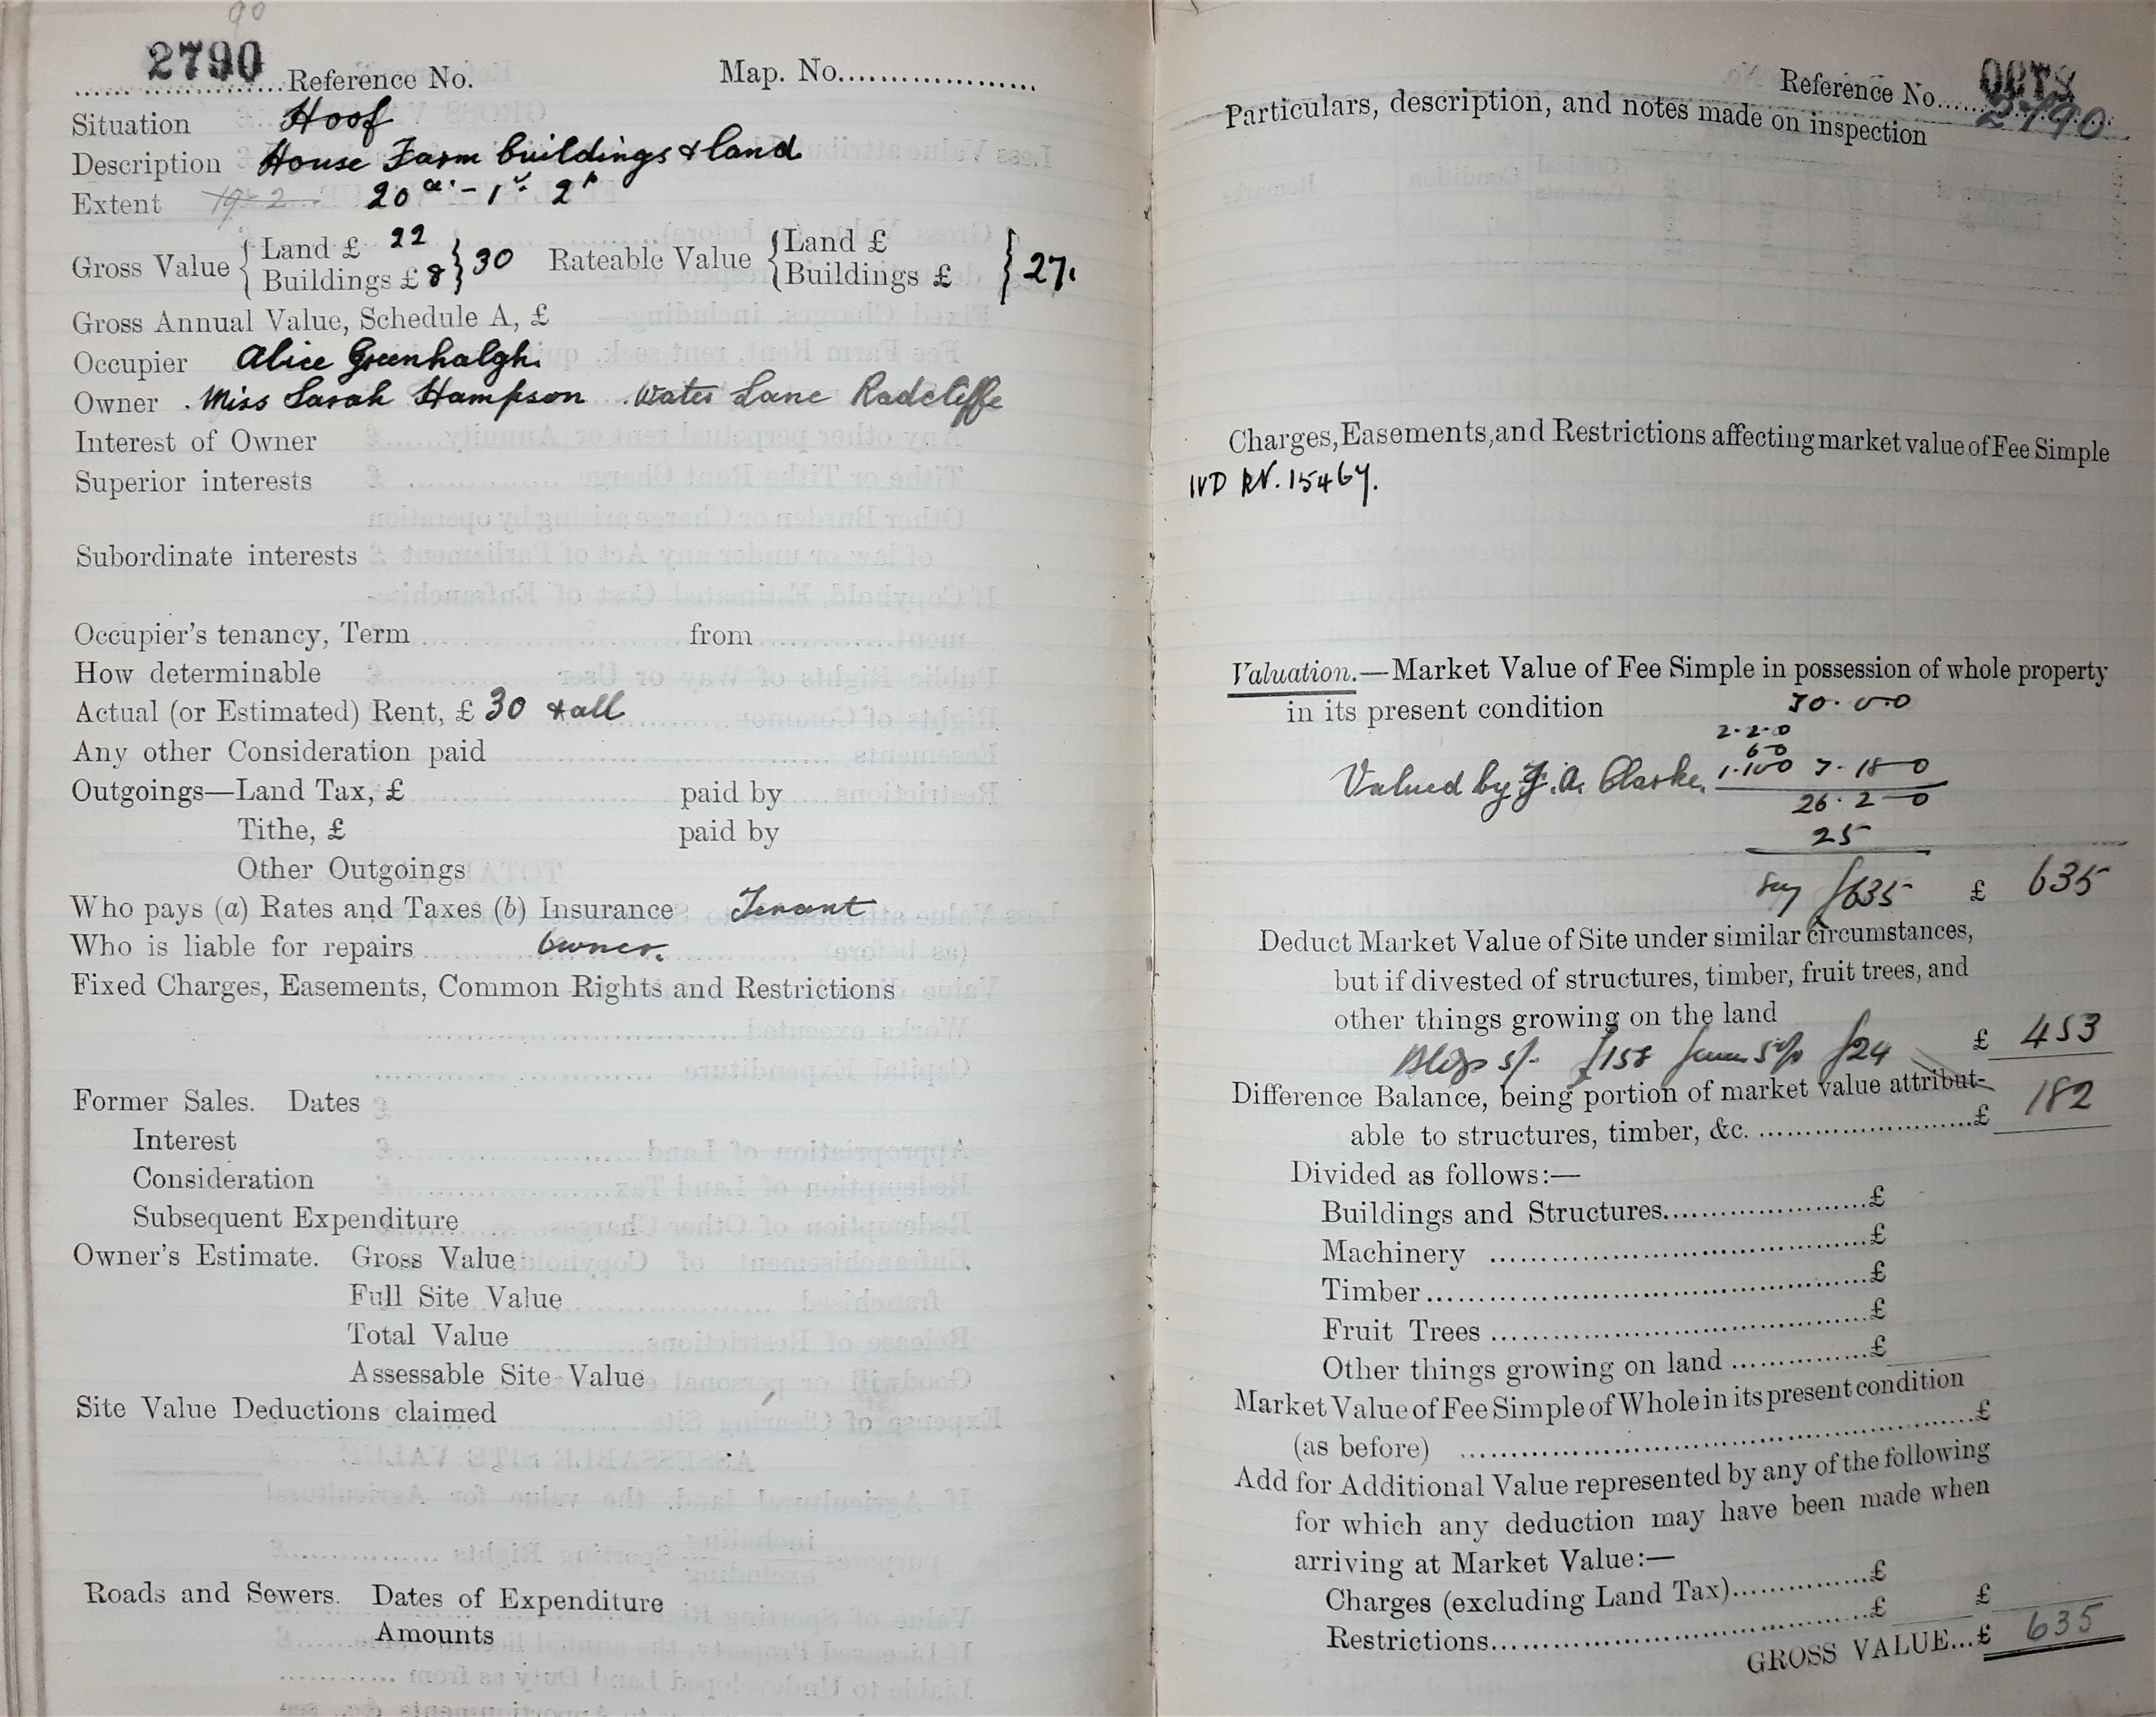 2790 Reference No. Map. No....................
Situation Hoof
Description House Farm buildings & land
Extent 19-2 20a. - 1r. 2p
Gross Value { Land £ 22 } 30 Rateable Value { Land £ } 27.
Buildings £ 8 Buildings £
Gross Annual Value, Schedule A, £
Occupier Alice Greenhalgh.
Owner . Miss Sarah Hampson . Water Lane Radcliffe
Interest of Owner
Superior interests
Subordinate interests
Occupier's tenancy, Term from
How determinable
Actual (or Estimated) Rent, £ 30 & all
Any other Consideration paid
Outgoings—Land Tax, £ paid by
Tithe, £ paid by
Other Outgoings
Who pays (a) Rates and Taxes (b) Insurance Tenant
Who is liable for repairs Owner.
Fixed Charges, Easements, Common Rights and Restrictions
Former Sales. Dates
Interest
Consideration
Subsequent Expenditure
Owner's Estimate. Gross Value
Full Site Value
Total Value
Assessable Site Value
Site Value Deductions claimed
Roads and Sewers. Dates of Expenditure
Amounts
Reference No. 2790
Particulars, description, and notes made on inspection
Charges, Easements, and Restrictions affecting market value of Fee Simple
IVD RV. 15467.
Valuation.—Market Value of Fee Simple in possession of whole property
in its present condition 30.0.0
2.2.0
6-0
Valued by F. A. Clarke. 1.10.0 3.18-0
26.2-0
25
Say £635 £ 635
Deduct Market Value of Site under similar circumstances,
but if divested of structures, timber, fruit trees, and
other things growing on the land
Bldgs s/- £158 £24 £ 453
Difference Balance, being portion of market value attribut-
able to structures, timber, &c. ........................£ 182
Divided as follows:—
Buildings and Structures......................£
Machinery ........................................£
Timber..............................................£
Fruit Trees .......................................£
Other things growing on land ...............£
Market Value of Fee Simple of Whole in its present condition
(as before) ......................................................£
Add for Additional Value represented by any of the following
for which any deduction may have been made when
arriving at Market Value:—
Charges (excluding Land Tax)...............£
Restrictions.......................................£ £
GROSS VALUE...£ 635